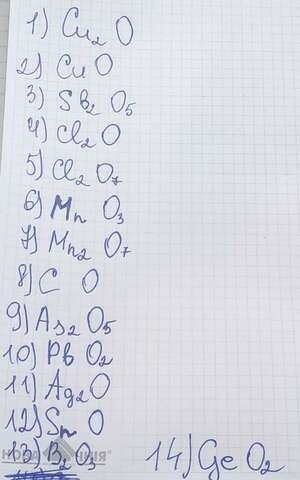 1) Cu₂ O
2) Cu O
3) Sb₂ O₅
4) Cl₂ O
5) Cl₂ O₇
6) Mn O₃
7) Mn₂ O₇
8) C O
9) As₂ O₅
10) Pb O₂
11) Ag₂ O
12) Sn O
13) B₂ O₃
14) Ge O₂